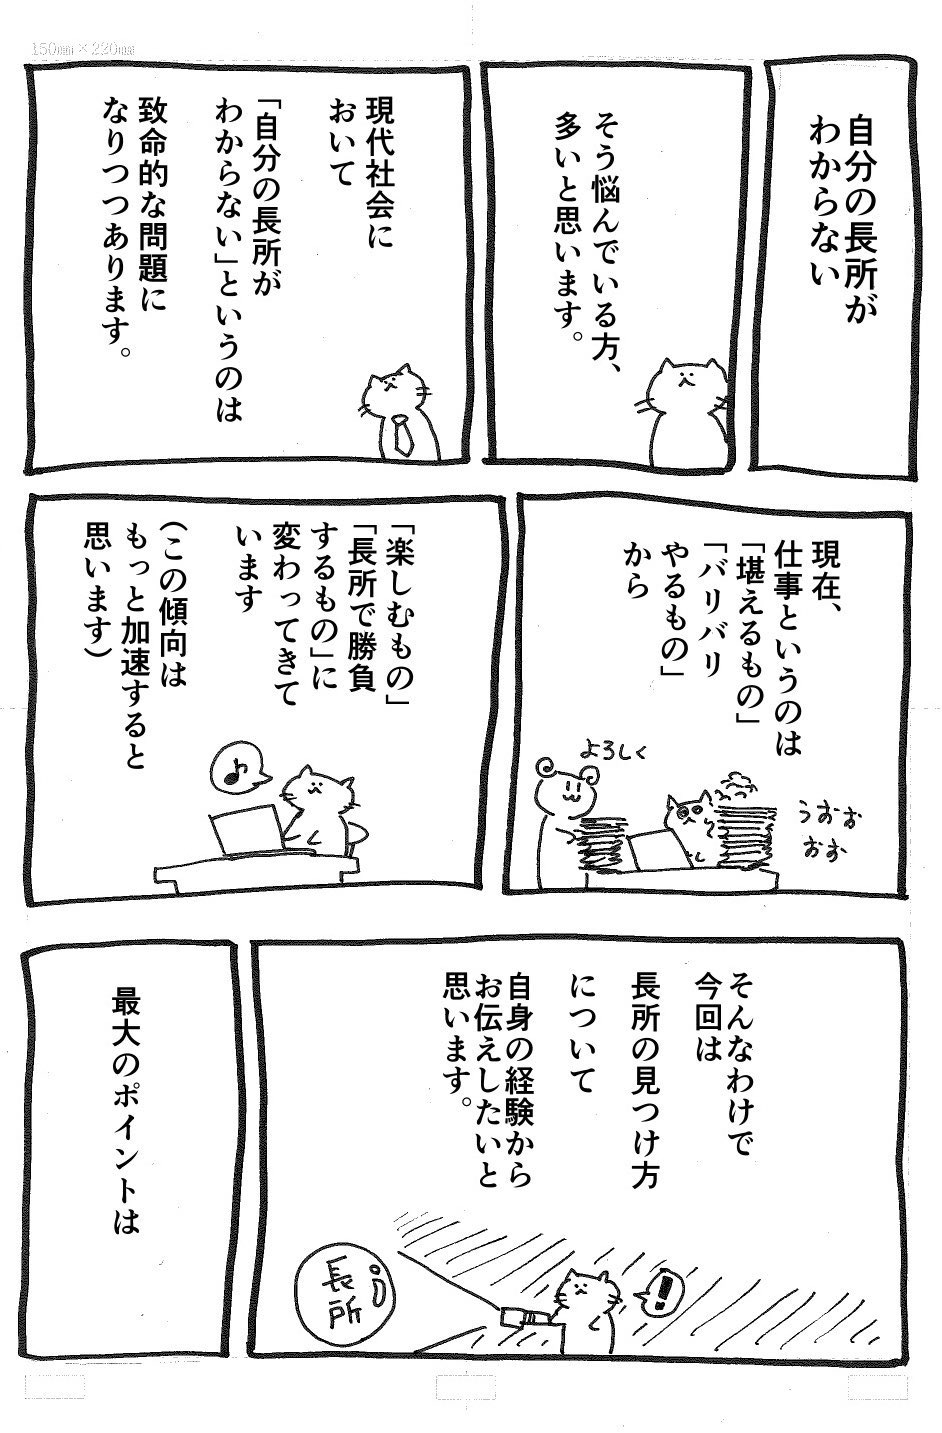 150mm×220mm
自分の長所が
わからない
そう悩んでいる方、
多いと思います。
現代社会に
おいて
「自分の長所が
わからない」というのは
致命的な問題に
なりつつあります。
現在、
仕事というのは
「堪えるもの」
「バリバリ
やるもの」
から
よろしく
うおお
おお
「楽しむもの」
「長所で勝負
するもの」に
変わってきて
います
(この傾向は
もっと加速すると
思います)
♪
そんなわけで
今回は
長所の見つけ方
について
自身の経験から
お伝えしたいと
思います。
!
長所
最大のポイントは